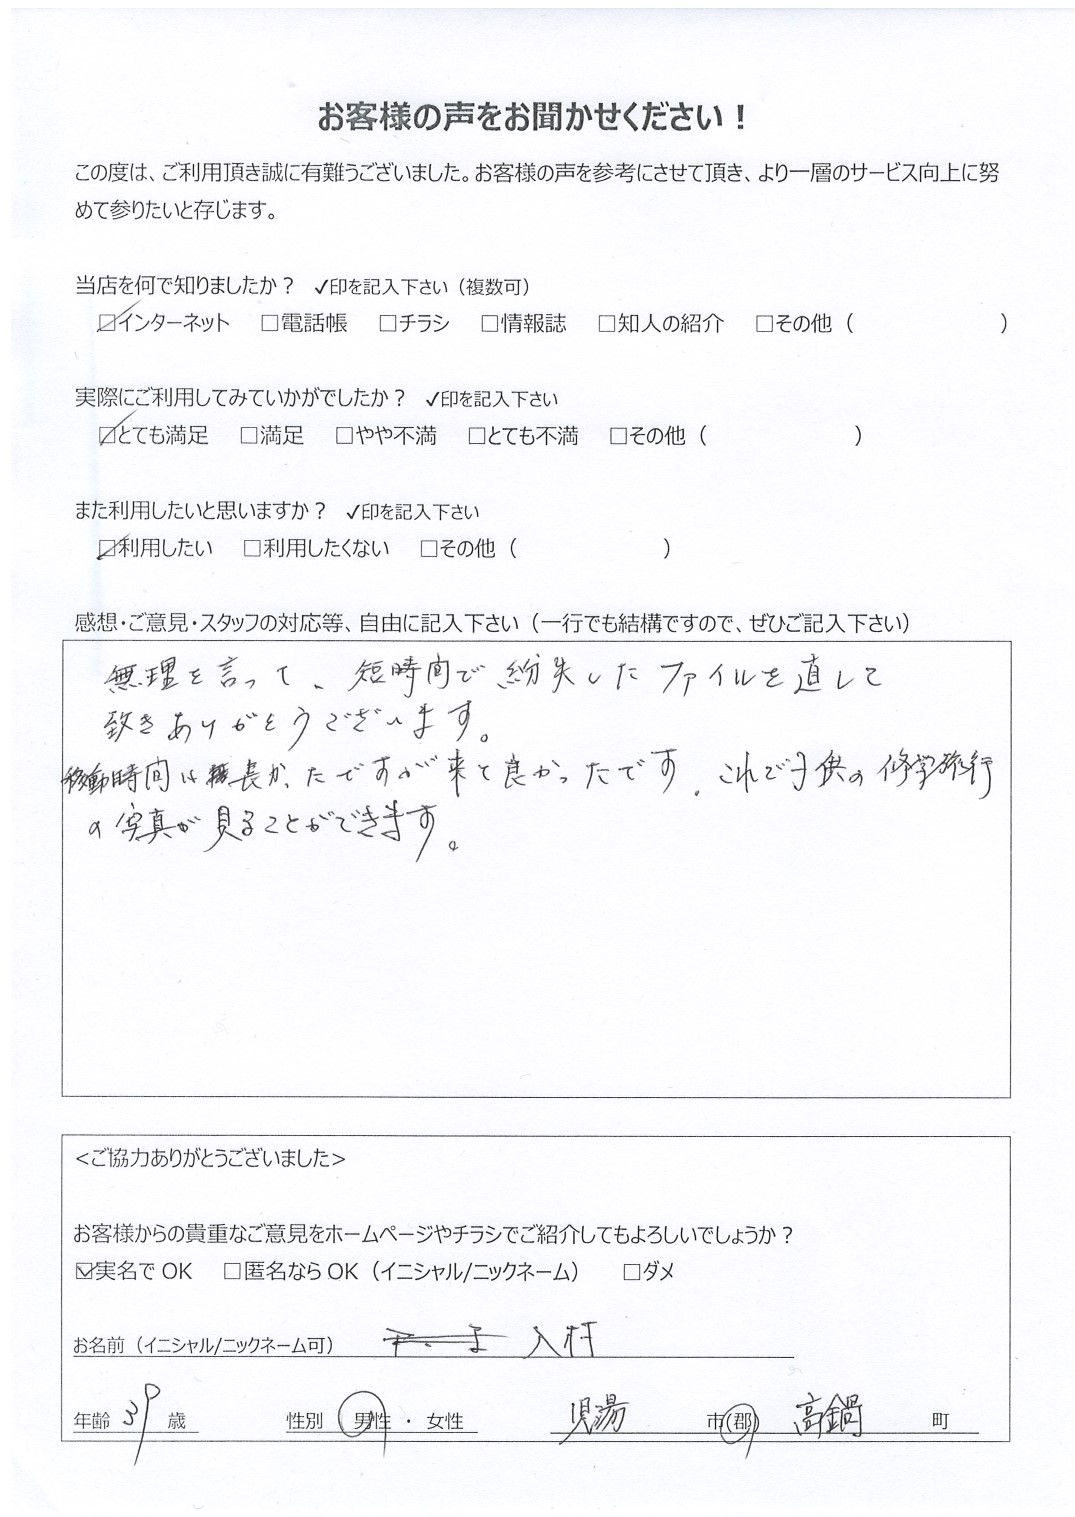 お客様の声をお聞かせください！
この度は、ご利用頂き誠に有難うございました。お客様の声を参考にさせて頂き、より一層のサービス向上に努
めて参りたいと存じます。
当店を何で知りましたか？ ✓印を記入下さい（複数可）
☑インターネット □電話帳 □チラシ □情報誌 □知人の紹介 □その他（ ）
実際にご利用してみていかがでしたか？ ✓印を記入下さい
☑とても満足 □満足 □やや不満 □とても不満 □その他（ ）
また利用したいと思いますか？ ✓印を記入下さい
☑利用したい □利用したくない □その他（ ）
感想・ご意見・スタッフの対応等、自由に記入下さい（一行でも結構ですので、ぜひご記入下さい）
無理を言って、短時間で紛失したファイルを直して
致きありがとうございます。
移動時間は長かったですが来て良かったです。これで子供の修学旅行
の写真が見ることができます。
<ご協力ありがとうございました>
お客様からの貴重なご意見をホームページやチラシでご紹介してもよろしいでしょうか？
☑実名で OK □匿名なら OK（イニシャル/ニックネーム） □ダメ
お名前（イニシャル/ニックネーム可） 入村
年齢 39 歳 性別 男性 ・ 女性 児湯 市(郡) 高鍋 町